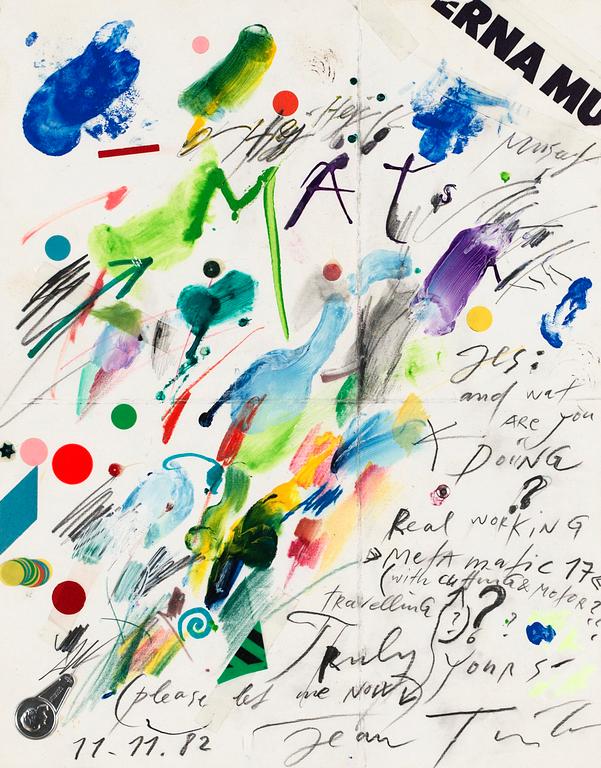 ERNA MU
Hey Hey
MATS
yes:
and wat
ARE you
DOiNG
?
Real WORKiNG
MetA matic 17
(with cutting & MOTOR?
travelling (?) ?
Truly yours -
(please let me NOW)
11-11.82 Jean